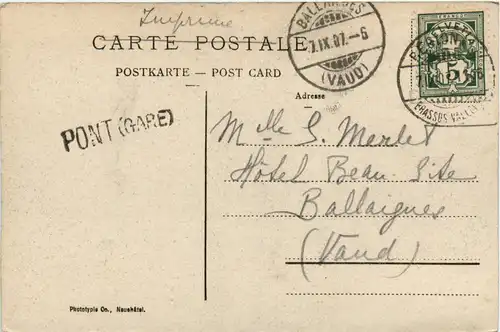 Imprimé
CARTE POSTALE
POSTKARTE – POST CARD
Adresse
BALLAIGUES
7.IX.07.–6
(VAUD)
5
PONT (GARE)
Mlle S. Merlet
Hôtel Beau-Site
Ballaigues
(Vaud)
Phototypie Co., Neuchâtel.